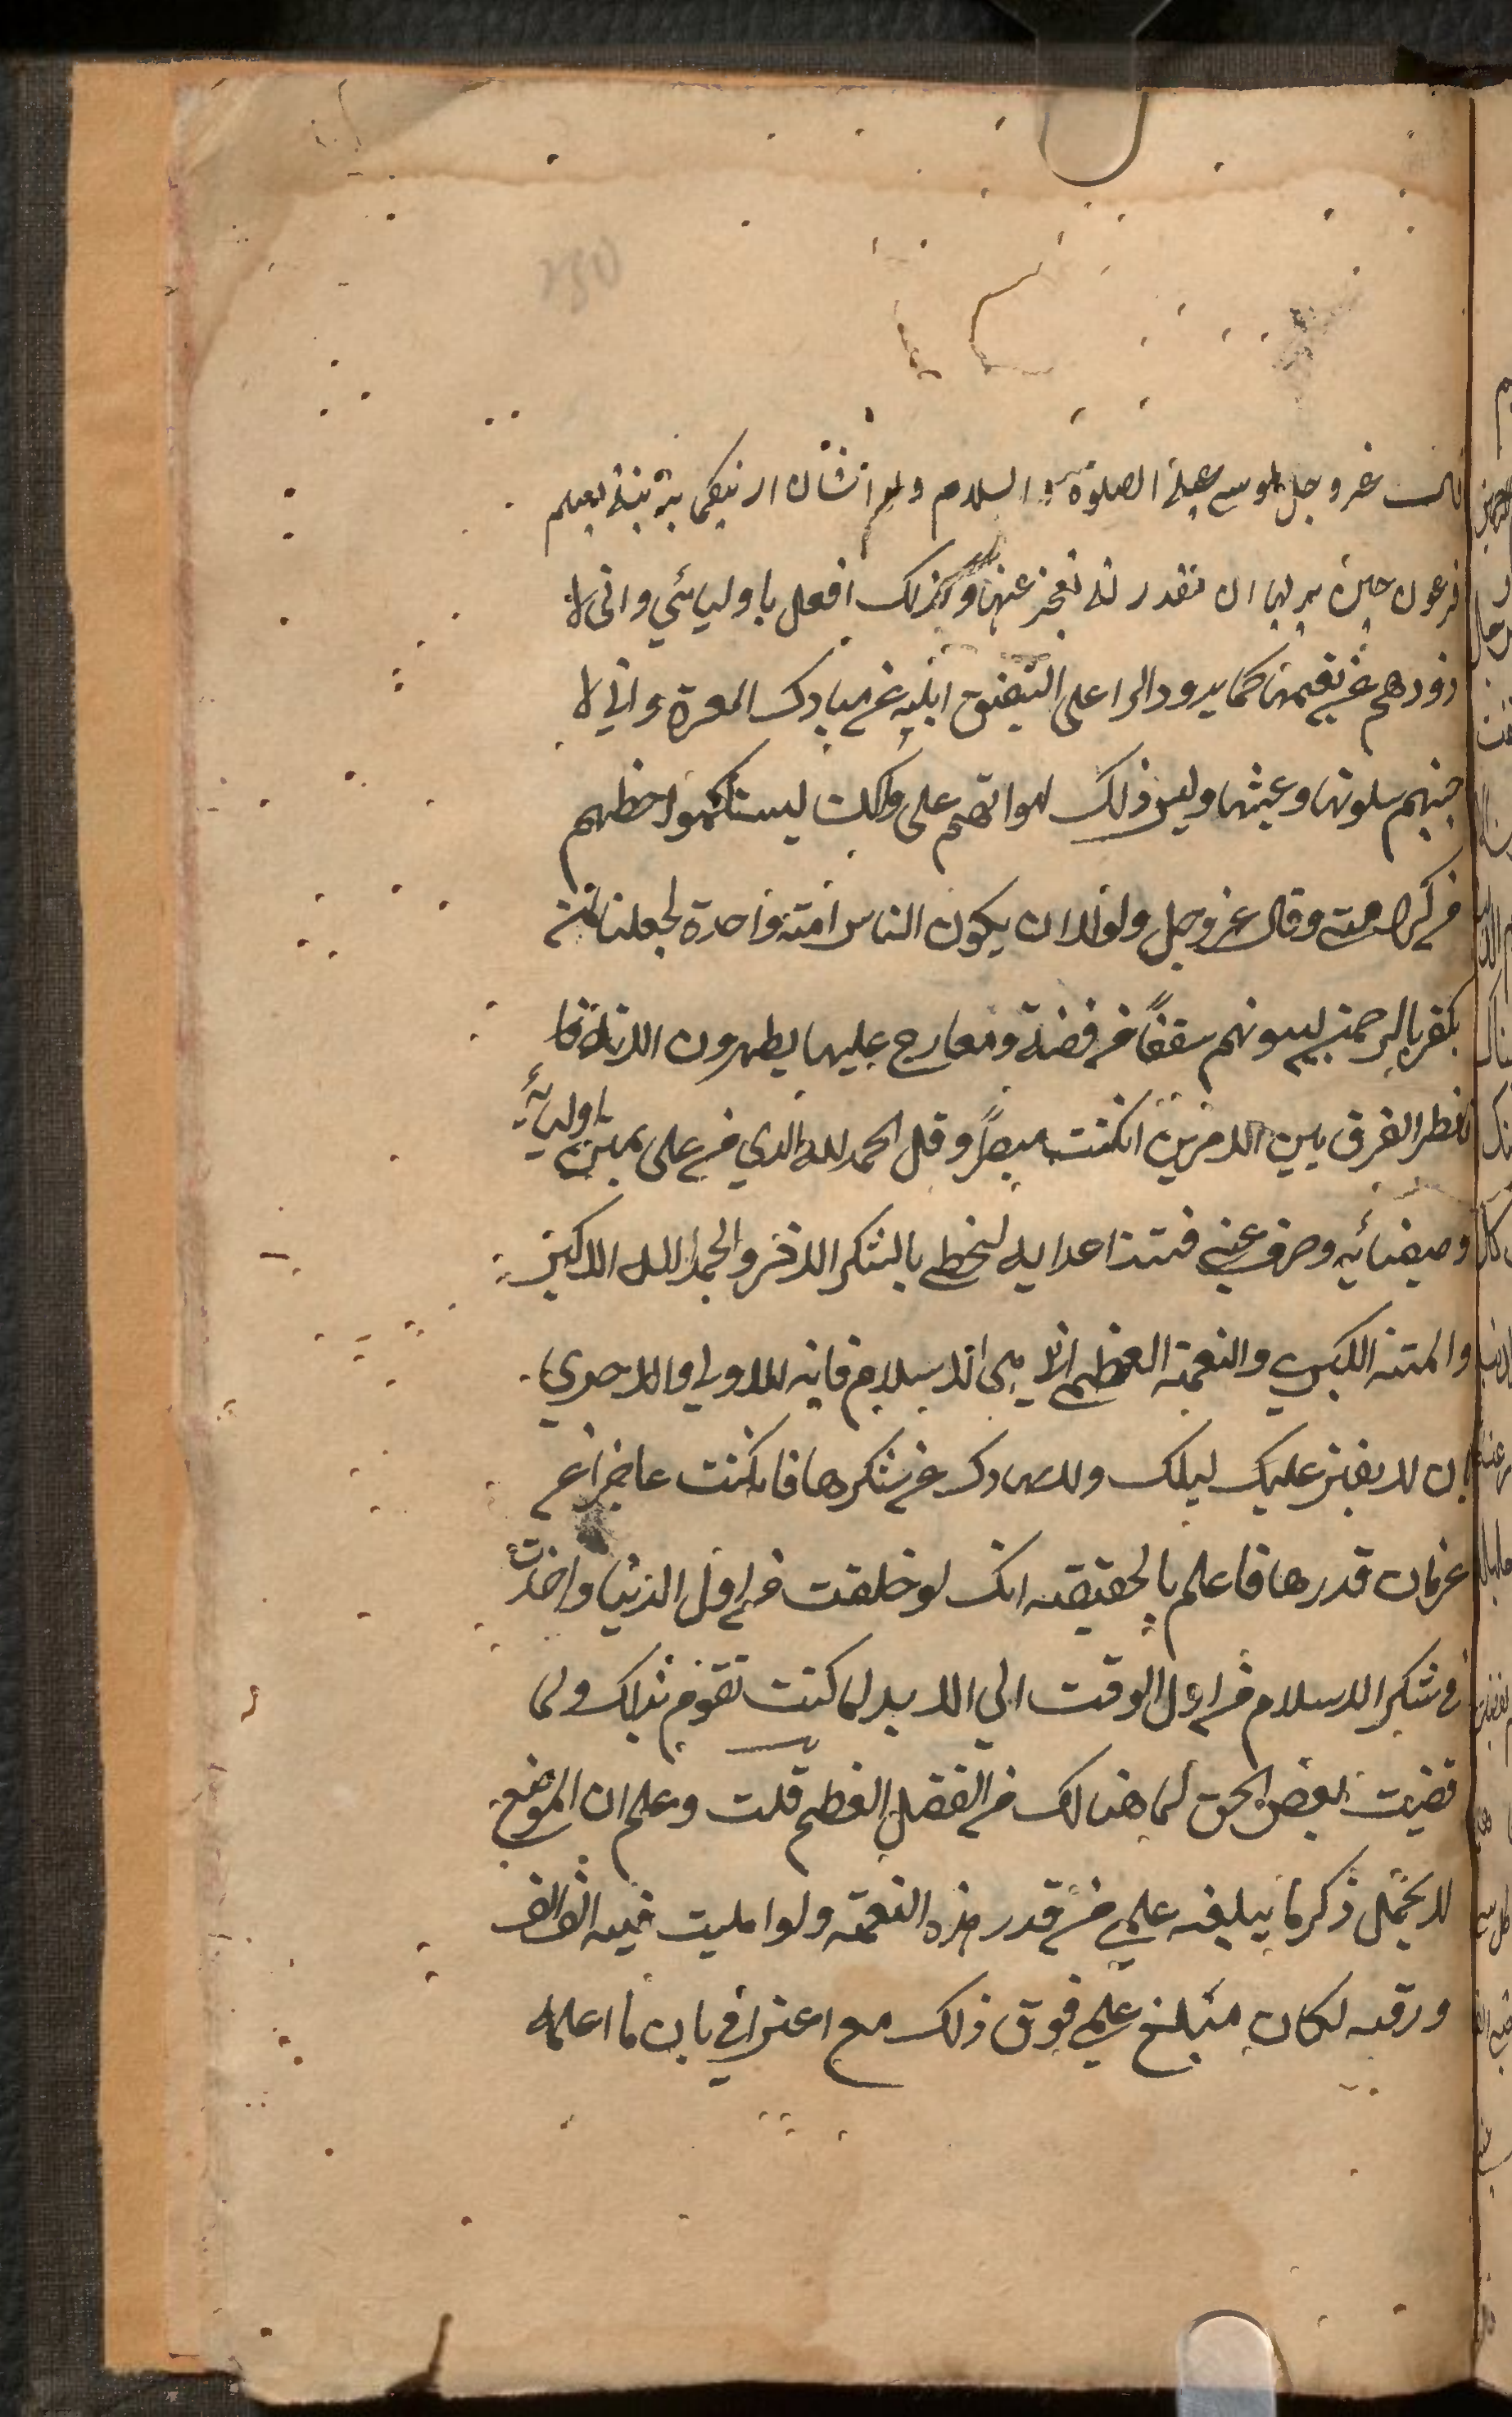 قال عز وجل لموسى عليه الصلوة والسلام ولو اشاء ان ازينكما بزينة يعلم
فرعون حين يريها ان مقدرته تعجز عنها وكذلك افعل باوليائي واني لا
ذودهم عن نعيمها كما يذود الراعي الشفيق ابله عن مبارك العرة واني لا
جنبهم سلوتها وعيشها وليس ذلك لهوانهم على ولكن ليستكملوا حظهم
من كرامته وقال عز وجل ولولا ان يكون الناس امة واحدة لجعلنا لمن
يكفر بالرحمن لبيوتهم سقفًا من فضة ومعارج عليها يظهرون الاية فا
نظر الفرق بين الامرين ان كنت مبصرًا وقل الحمد لله الذي من على بمنن اوليائه
وصفيائه وصرف عني فتنة اعدايه لنخطي بالشكر الاوفر والحمد لله الاكبر
والمنة الكبرى والنعمة العظمى الا وهي الاسلام فانه الاولى والاحرى
بان لا يفتر عليك ليلك ونهارك عن شكرها فان كنت عاجزا عن
عرفان قدرها فاعلم بالحقيقة انك لو خلقت من اول الدنيا واخذت
في شكر الاسلام من اول الوقت الي الابد لما كنت تقوم بذلك ولما
قضيت بعض الحق لما هنالك من الفضل العظيم قلت وعلم ان الموضع
لا يحتمل ذكر ما يبلغه علمي من قدر هذه النعمة ولو امليت فيه الف الف
ورقه لكان مبلغ علمي فوق ذلك مع اعترافي بان ما اعلمه